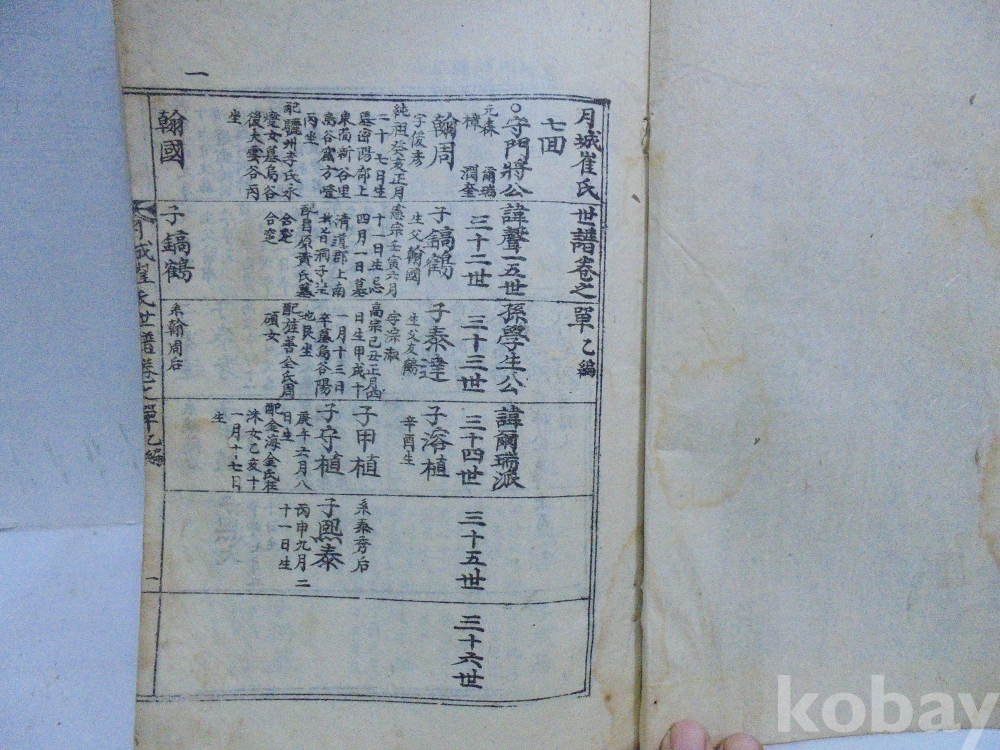 月城崔氏世譜卷之單乙編
七囬
守門將公諱聲一五世孫學生公諱爾瑞派
元森 爾瑞
樟 潤奎
三十二世
三十三世
三十四世
三十五世
三十六世
翰周
字俊彥
純祖癸亥正月
二十七日生
墓密陽府上
東面新谷里
丙坐
配驪州李氏永
燮女墓烏谷
後大雲谷丙
坐
翰國
子鎬鶴
生父翰國
憲宗壬寅六月
十一日生忌
四月一日墓
清道郡上南
配昌原黃氏墓
合窆
合窆
子鎬鶴
子泰達
生父友鶴
字淙淑
高宗己丑正月四
日生甲戌十
一月十三日
卒墓烏谷陽
也艮坐
配金氏周
碩女
系翰周后
子浴植
辛酉生
子甲植
子守植
庚午五月八
日生
配金海金氏在
洙女乙亥十
一月十七日
生
系泰秀后
子熙泰
丙申九月二
十一日生
城崔氏世譜卷之單乙編
一
一
kobay